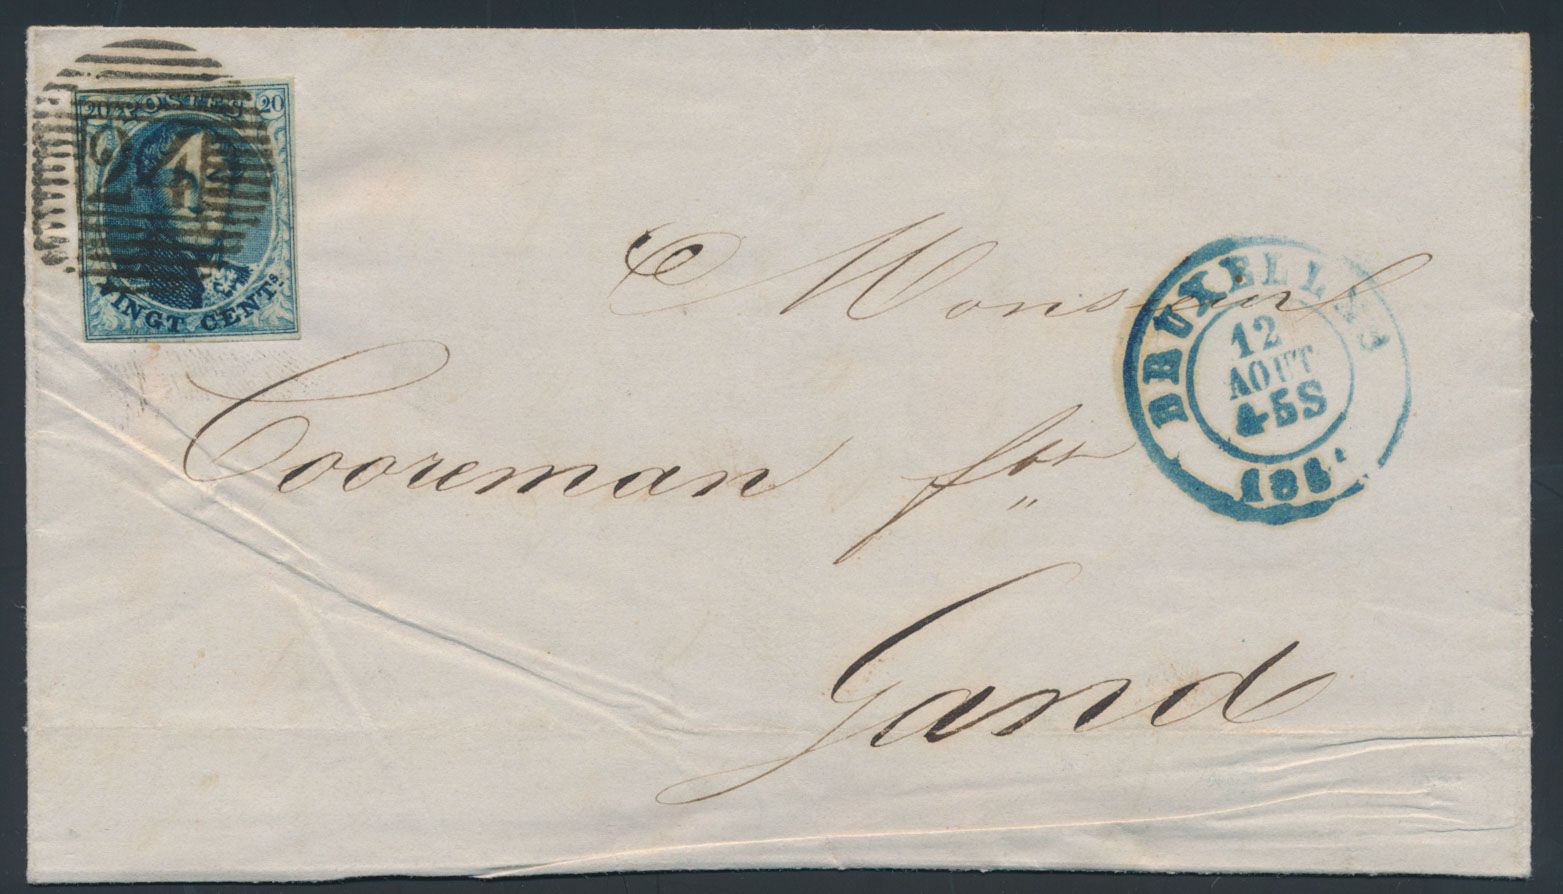 20 POSTES 20
24
VINGT CENTS.
Monsieur
Cooreman
Gand
BRUXELLES
12
AOUT
4-5S